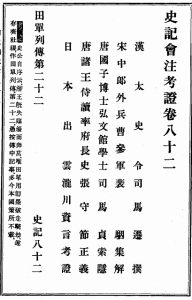 史記會注考證卷八十二
漢太史令司馬遷撰
宋中郎外兵曹參軍裴駰集解
唐國子博士弘文館學士司馬貞索隱
唐諸王侍讀率府長史張守節正義
日本出雲瀧川資言考證
田單列傳第二十二
史記八十二